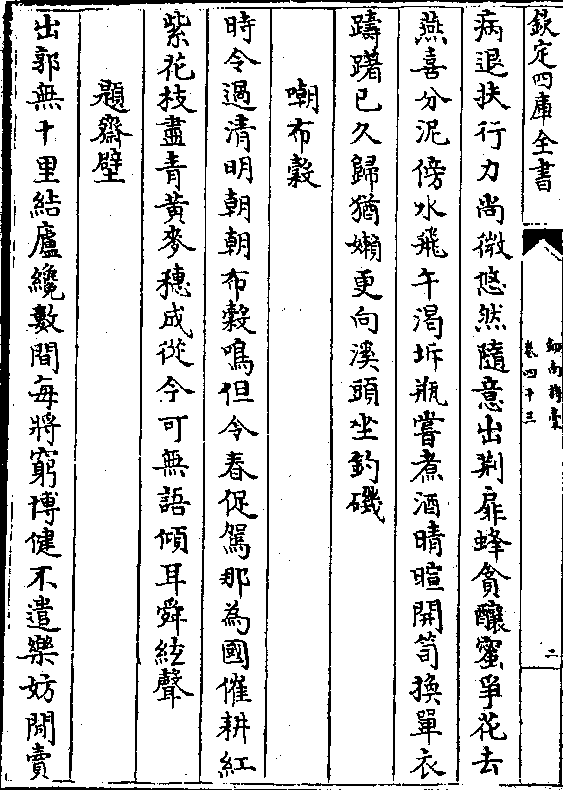 欽定四庫全書
劒南詩稾
卷四十三
二
病退扶行力尚微悠然隨意出荆扉蜂貪釀蜜爭花去
燕喜分泥傍水飛午渴坼瓶嘗煮酒晴暄開笥換單衣
躊躇已久歸猶嬾更向溪頭坐釣磯
嘲布穀
時令過清明朝朝布穀鳴但令春促駕那為國催耕紅
紫花枝盡青黃麥穗成從今可無語傾耳舜絃聲
題齋壁
出郭無十里結廬纔數間每將窮博健不遣樂妨閒賣